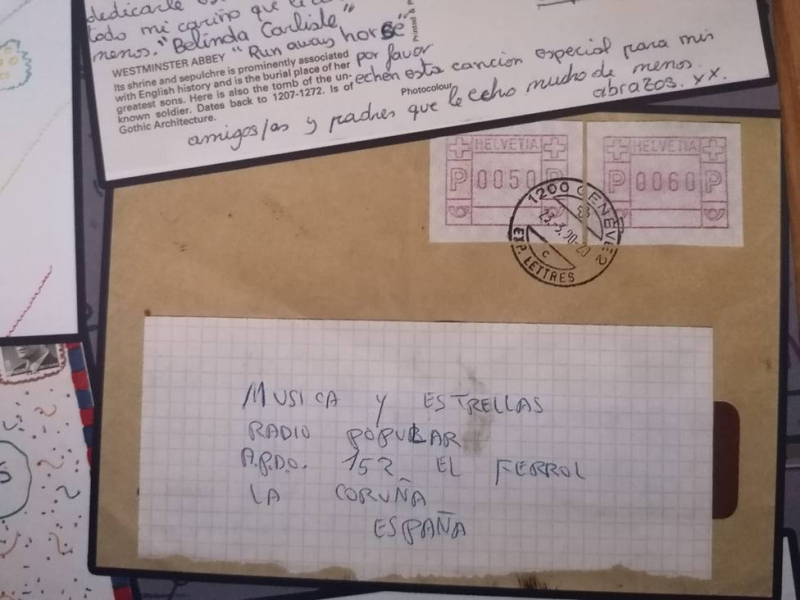 dedicarle
todo mi cariño que
menos. "Belinda Carlisle"
"Run away horse"
WESTMINSTER ABBEY
Its shrine and sepulchre is prominently associated
with English history and is the burial place of her
greatest sons. Here is also the tomb of the un-
known soldier. Dates back to 1207-1272. Is of
Gothic Architecture.
Photocolour
por favor
echen esta cancion especial para mis
amigos/as y padres que le echo mucho de menos.
abrazos. xx.
HELVETIA
P 0050 P
HELVETIA
P 0060 P
1200 GENÈVE 2
EXP. LETTRES
C
MUSICA Y ESTRELLAS
RADIO POPULAR
APDO. 152 EL FERROL
LA CORUÑA
ESPAÑA